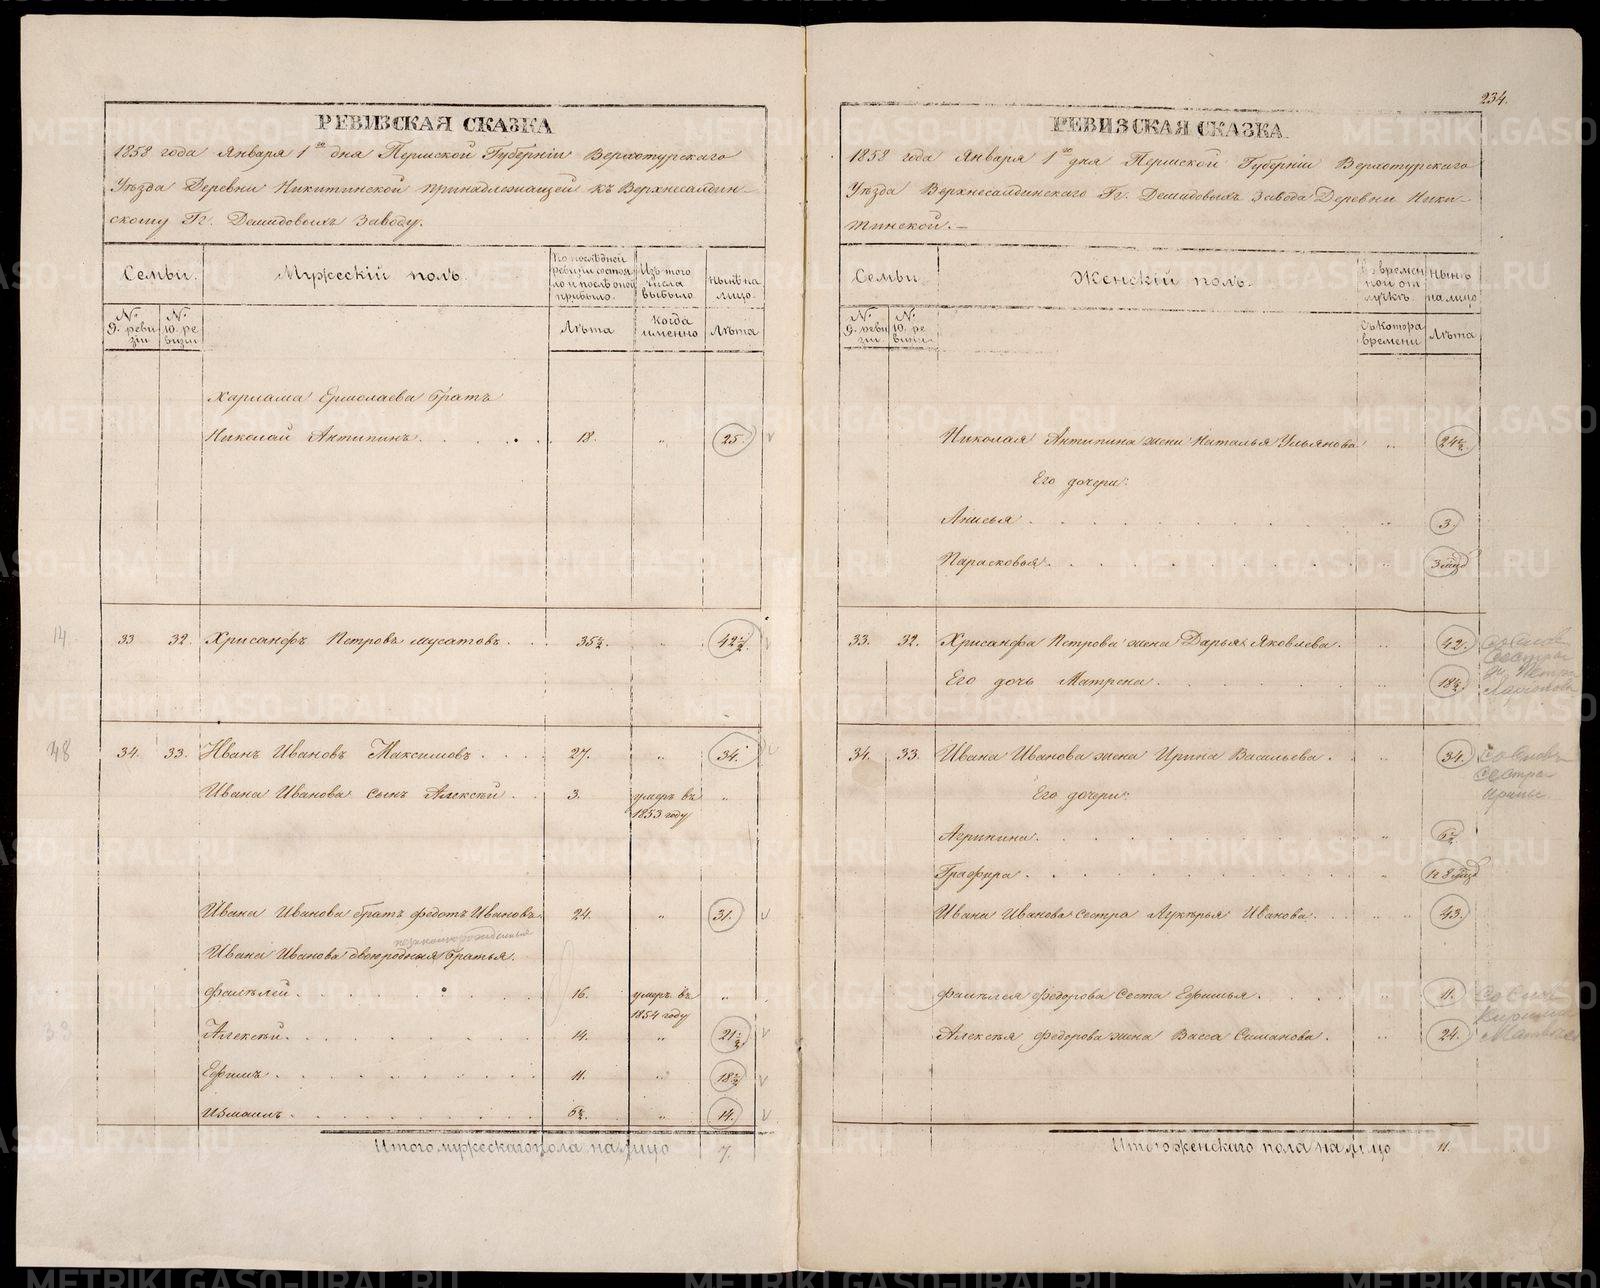 РЕВИЗСКАЯ СКАЗКА
1858 года Января 1го дня Пермской Губерніи Верхотурскаго
Уѣзда Деревни Никитинской принадлежащей къ Верхнесалдин-
скому Гг. Демидовыхъ заводу.
Семьи.
Мужескій полъ.
По послѣдней ревизіи состояло и послѣ оной прибыло.
Изъ того числа выбыло
Нынѣ на лицо.
№ 9. ревизіи
№ 10. ревизіи
Лѣта
Когда именно
Лѣта
Харлама Ермолаева братъ
Николай Антипинъ . . . . 18. „ 25.
14
33 32. Хрисанфъ Петровъ Мусатовъ . . . 35½. „ 42½.
48
34. 33. Иванъ Ивановъ Максимовъ . . . . 27. „ 34.
Ивана Иванова сынъ Алексѣй . . 3. умеръ въ „
1853 году
Ивана Иванова братъ Федотъ Ивановъ 24. „ 31.
Ивана Иванова двоюродныя братья.
Фалѣлей . . . . 16. умеръ въ „
1854 году
33
Алексѣй . . . . 14. „ 21½
Ефимъ . . . . 11. „ 18½
Измаилъ . . . . 6½. „ 14.
Итого мужескаго пола на лицо 7.
234.
РЕВИЗСКАЯ СКАЗКА
1858 года Января 1го дня Пермской Губерніи Верхотурскаго
Уѣзда Верхнесалдинскаго Гг. Демидовыхъ завода Деревни Ники-
тинской. —
Семьи
Женскій полъ.
Во временной отлучкѣ.
Нынѣ на лицо
№ 9. ревизіи
№ 10. ревизіи
Съ котора времени
Лѣта
Николая Антипина жена Наталья Ульянова „ 24½
Его дочери:
Анисья . . . . „ 3.
Парасковья . . . . „ 3 мѣс.
33. 32. Хрисанфа Петрова жена Дарья Яковлева. „ 42.
Его дочь Матрена . . . . „ 18½
сестра
34. 33. Ивана Иванова жена Ирина Васильева . „ 34.
сестра
Его дочери:
Агрипина . . . . „ 6½
Графира . . . . „ 1 и 8 мѣс.
Ивана Иванова сестра Лукерья Иванова . . „ 43.
Фалѣлея Федорова сеста Ефимья . . . . „ 11.
Алексѣя Федорова жена Васса Симанова . „ 24.
Итого женскаго пола на лицо 11.
METRIKI.GASO-URAL.RU